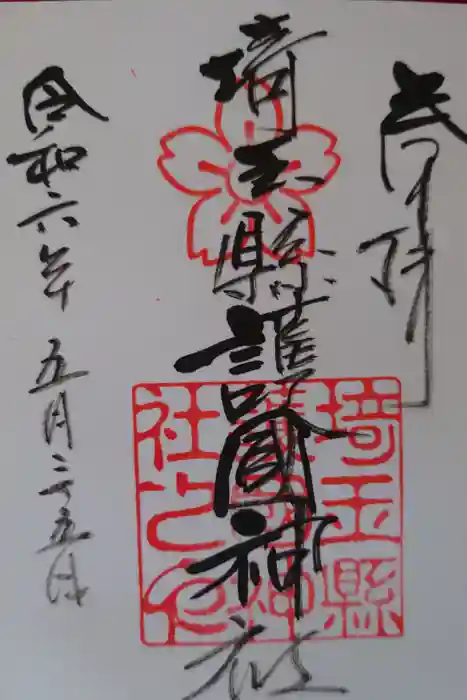 奉拝
埼玉縣護國神社
埼玉縣護國神社之印
令和六年 五月二十五日